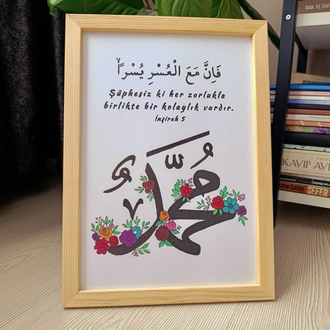 فَاِنَّ مَعَ الْعُسْرِ يُسْرًاۙ
Şüphesiz ki her zorlukla
birlikte bir kolaylık vardır.
İnşirah 5
محمد
KAYIP